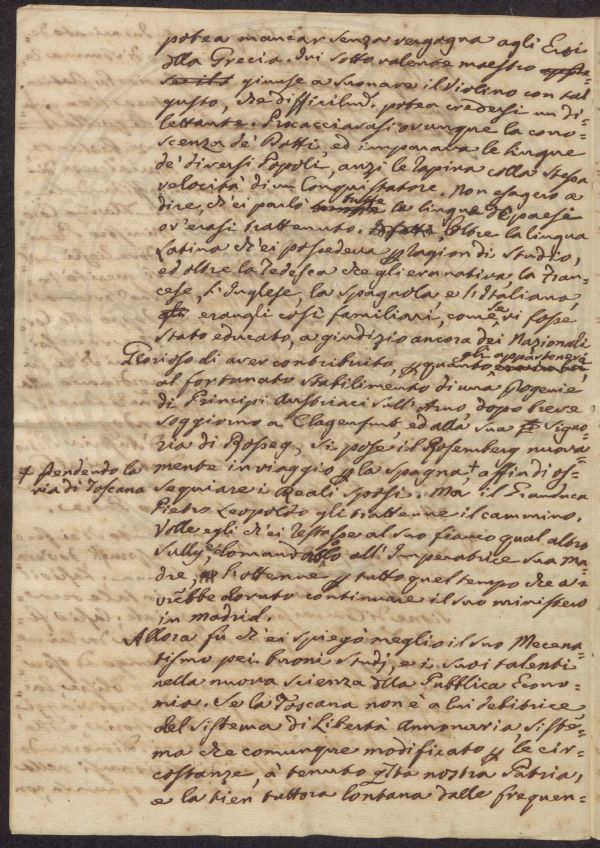 potea mancar senza vergogna agli Eroi
dlla Grecia. Ivi sotto valente maestro
giunse a suonare il Violino con tal
gusto, che difficilmẽ. potea credersi un di=
lettante. Procacciavasi ovunque la cono=
scenza de' Dotti, ed imparava le lingue
de' diversi Popoli, anzi le rapiva colla stessa
velocità di un Conquistatore. Non esagero a
dire, ch'ei parlò tutte le lingue de' paesi
ov'erasi trattenuto. Oltre la lingua
Latina ch'ei possedeva p ragion di Studio,
ed oltre la Tedesca che gli era nativa, la Fran=
cese, l'Inglese, la Spagnola e l'Italiana,
erangli così familiari, come se vi fosse
stato educato, a giudizio ancora dei Nazionali
Glorioso di aver contribuito, p quanto gli apparteneva,
al fortunato stabilimento di una Progenie
di Principi Austriaci sull'Arno, dopo breve
soggiorno a Clagenfurt, ed alla sua Signo=
ria di Rosseg, si pose il Rosemberg nuova=
mente in viaggio p la Spagna, + affin di os=
+ Prendendo la
via di Toscana
sequiare i Reali Sposi. Ma il Granduca
Pietro Leopoldo gli trattenne il cammino.
Volle egli ch'ei restasse al suo fianco qual altro
Sully, e domandollo all'Imperatrice sua Ma=
dre, l'ottenne p tutto quel tempo che a=
vrebbe dovuto continuare il suo ministero
in Madrid.
Allora fù ch'ei spiegò meglio il suo Mecena=
tismo pei buoni studj, e i suoi talenti
nella nuova scienza dlla Pubblica Econo=
mia. Se la Toscana non è a lui debitrice
del sistema di Libertà Annonaria, siste=
ma che comunque modificato p le cir=
costanze, à tenuto qta nostra Patria,
e la tien tuttora lontana dalle frequen=